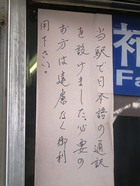 当駅で日本語の通訳
を設けました必要の
お方は遠慮なく御利
用下さい。
補
Fa